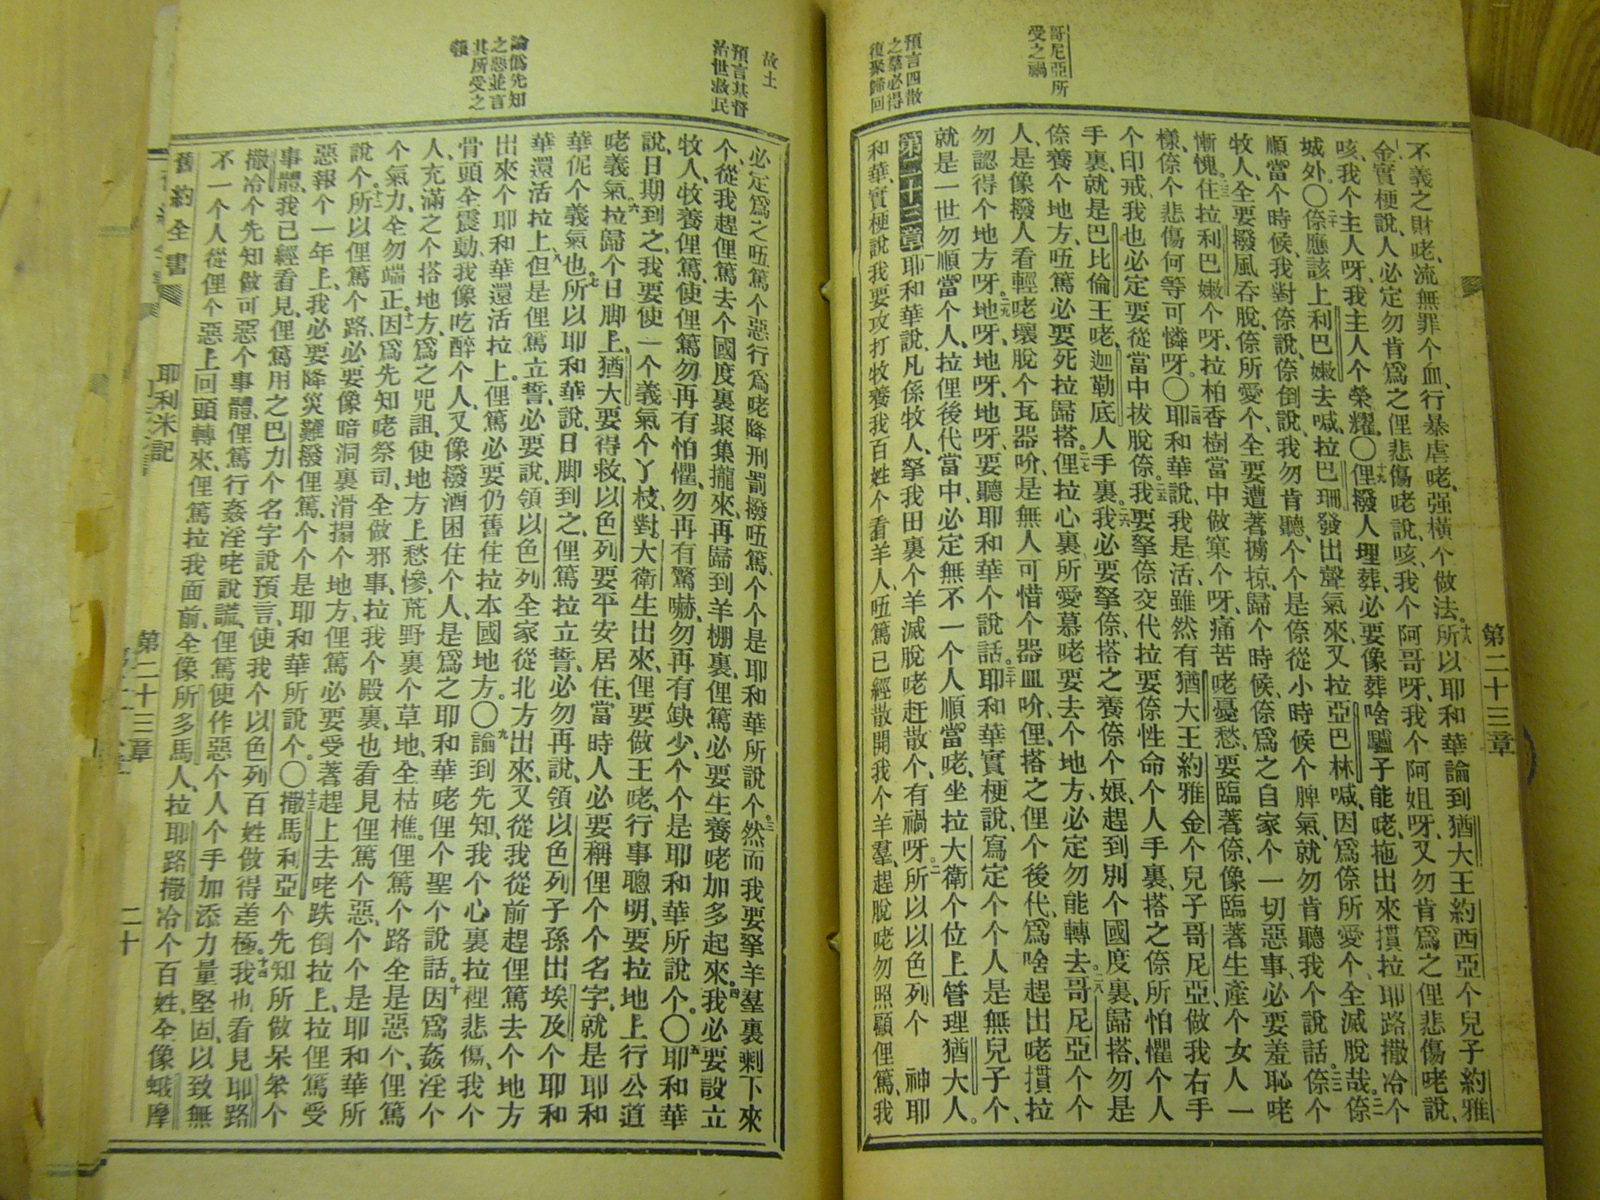 哥尼亞所
受之禍
預言四散
之羣必得
復聚歸回
第二十三章
不義之財咾、流無罪个血、行暴虐咾、强橫个做法。十八所以耶和華論到猶大王約西亞个兒子約雅
金實梗說、人必定勿肯爲之俚悲傷咾說、咳、我个阿哥呀、我个阿姐呀、又勿肯爲之俚悲傷咾說、
咳、我个主人呀、我主人个榮耀。〇十九俚撥人埋葬必要像葬啥驢子能咾、拖出來摜拉耶路撒冷个
城外〇二十倷應該上利巴嫩去喊、拉巴珊發出聲氣來、又拉亞巴林喊、因爲倷所愛个全滅脫哉倷
順當个時候、我對倷說、倷倒說、我勿肯聽、个个是倷從小時候个脾氣、就勿肯聽我个說話。倷个
牧人、全要撥風吞脫、倷所愛个、全要遭著擄掠、歸个時候、倷爲之自家个一切惡事、必要羞恥咾
慚愧。住拉利巴嫩个呀、拉柏香樹當中做窠个呀、痛苦咾憂愁、要臨著倷、像臨著生產个女人一
樣、倷个悲傷何等可憐呀。〇耶和華說、我是活、雖然有猶大王約雅金个兒子哥尼亞、做我右手
个印戒、我也必定要從當中拔脫倷。我要拏倷交代拉要倷性命个人手裏、搭之倷所怕懼个人
手裏、就是巴比倫王咾、迦勒底人手裏。我必要拏倷、搭之養倷个娘、趕到別个國度裏、歸搭、勿是
倷養个地方、㕶篤必要死拉歸搭。俚拉心裏所愛慕咾要去个地方、必定勿能轉去。哥尼亞个个
人、是像撥人看輕咾壞脫个瓦器吤、是無人可惜个器皿吤、俚、搭之俚个後代、爲啥趕出咾摜拉
勿認得个地方呀。地呀、地呀、地呀、要聽耶和華个說話。三十耶和華實梗說、寫定个个人是無兒子个、
就是一世勿順當个人、拉俚後代當中、必定無不一个人順當咾、坐拉大衛个位上管理猶大人。
第二十三章 一耶和華說、凡係牧人、拏我田裏个羊滅脫咾赶散个、有禍呀。二所以以色列个 神耶
和華、實梗說、我要攻打牧養我百姓个看羊人、㕶篤已經散開我个羊羣、趕脫咾勿照顧俚篤、我
故土
預言基督
治世救民
論僞先知
之惡並言
其所受之
報
必定爲之㕶篤个惡行爲咾降刑罰撥㕶篤、个个是耶和華所說个、三然而我要拏羊羣裏剩下來
个、從我趕俚篤去个國度裏聚集攏來、再歸到羊棚裏、俚篤必要生養咾加多起來。四我必要設立
牧人、牧養俚篤、使俚篤勿再有怕懼、勿再有驚嚇、勿再有缺少、个个是耶和華所說个。〇五耶和華
說、日期到之、我要使一个義氣个丫枝、對大衛生出來、俚要做王咾、行事聰明、要拉地上行公道
咾義氣。六拉歸个日脚上、猶大要得救、以色列要平安居住、當時人必要稱俚个个名字、就是耶和
華伲个義氣也。七所以耶和華說、日脚到之、俚篤拉立誓、必勿再說、領以色列子孫出埃及个耶和
華還活拉上、八但是俚篤立誓、必要說、領以色列全家從北方出來、又從我從前趕俚篤去个地方
出來个耶和華還活拉上。俚篤必要仍舊住拉本國地方。〇九論到先知、我个心裏拉裡悲傷、我个
骨頭全震動、我像吃醉个人、又像撥酒困住个人、是爲之耶和華咾俚个聖个說話。十因爲姦淫个
人、充滿之个搭地方、爲之咒詛、使地方上愁慘、荒野裏个草地、全枯樵。俚篤个路全是惡个、俚篤
个氣力、全勿端正。十一因爲先知咾祭司、全做邪事、拉我个殿裏、也看見俚篤个惡、个个是耶和華所
說个。十二所以俚篤个路、必要像暗洞裏滑搨个地方、俚篤必要受著趕上去咾跌倒拉上、拉俚篤受
惡報个一年上、我必要降災難撥俚篤、个个是耶和華所說个。〇十三撒馬利亞个先知所做呆笨个
事體、我已經看見、俚篤用之巴力个名字說預言、使我个以色列百姓做得差極。十四我也看見耶路
撒冷个先知做可惡个事體、俚篤行姦淫咾說謊、俚篤使作惡个人个手加添力量堅固、以致無
不一个人從俚个惡上回頭轉來、俚篤拉我面前、全像所多馬人、拉耶路撒冷个百姓、全像蛾摩
舊約全書 耶利米記 第二十三章 二十